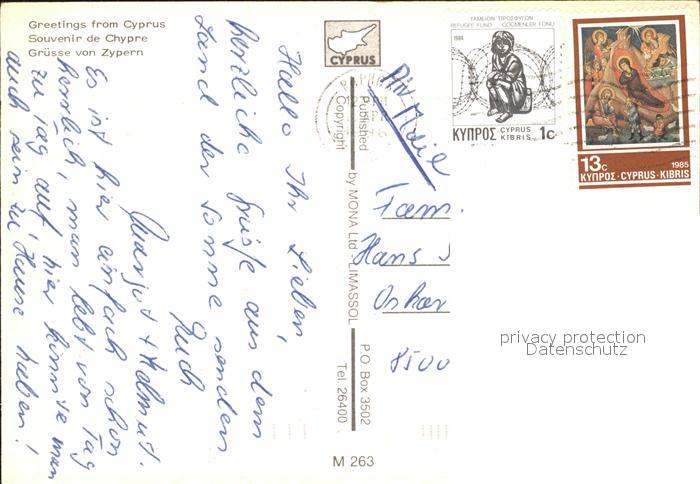 Greetings from Cyprus
Souvenir de Chypre
Grüsse von Zypern
CYPRUS
Published
Copyright
by MONA Ltd - LIMASSOL
P.O. Box 3502
Tel. 26400
M 263
Hallo Ihr Lieben,
herzliche Grüsse aus dem
Land der Sonne senden
Euch
Margot + Helmut.
Es ist hier einfach schön
herrlich, man lebt von Tag
zu Tag auf, hier könnte man
auch sein zu Hause haben!
Air Mail
Fam.
Hans
Oskar
8500
ΤΑΜΕΙΟΝ ΠΡΟΣΦΥΓΩΝ
REFUGEE FUND GÖÇMENLER FONU
1984
ΚΥΠΡΟΣ CYPRUS KIBRIS 1c
13c 1985
ΚΥΠΡΟΣ·CYPRUS·KIBRIS
privacy protection
Datenschutz